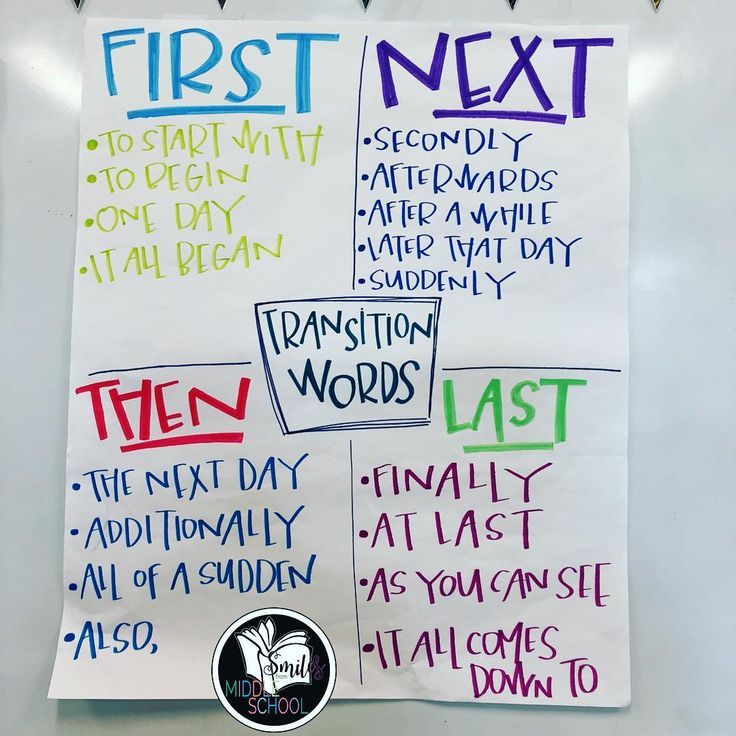 FIRST
•TO START WITH
•TO BEGIN
•ONE DAY
•IT ALL BEGAN
NEXT
•SECONDLY
•AFTERWARDS
•AFTER A WHILE
•LATER THAT DAY
•SUDDENLY
TRANSITION
WORDS
THEN
•THE NEXT DAY
•ADDITIONALLY
•ALL OF A SUDDEN
•ALSO,
LAST
•FINALLY
•AT LAST
•AS YOU CAN SEE
•IT ALL COMES
DOWN TO
Smiles
from
MIDDLE
SCHOOL